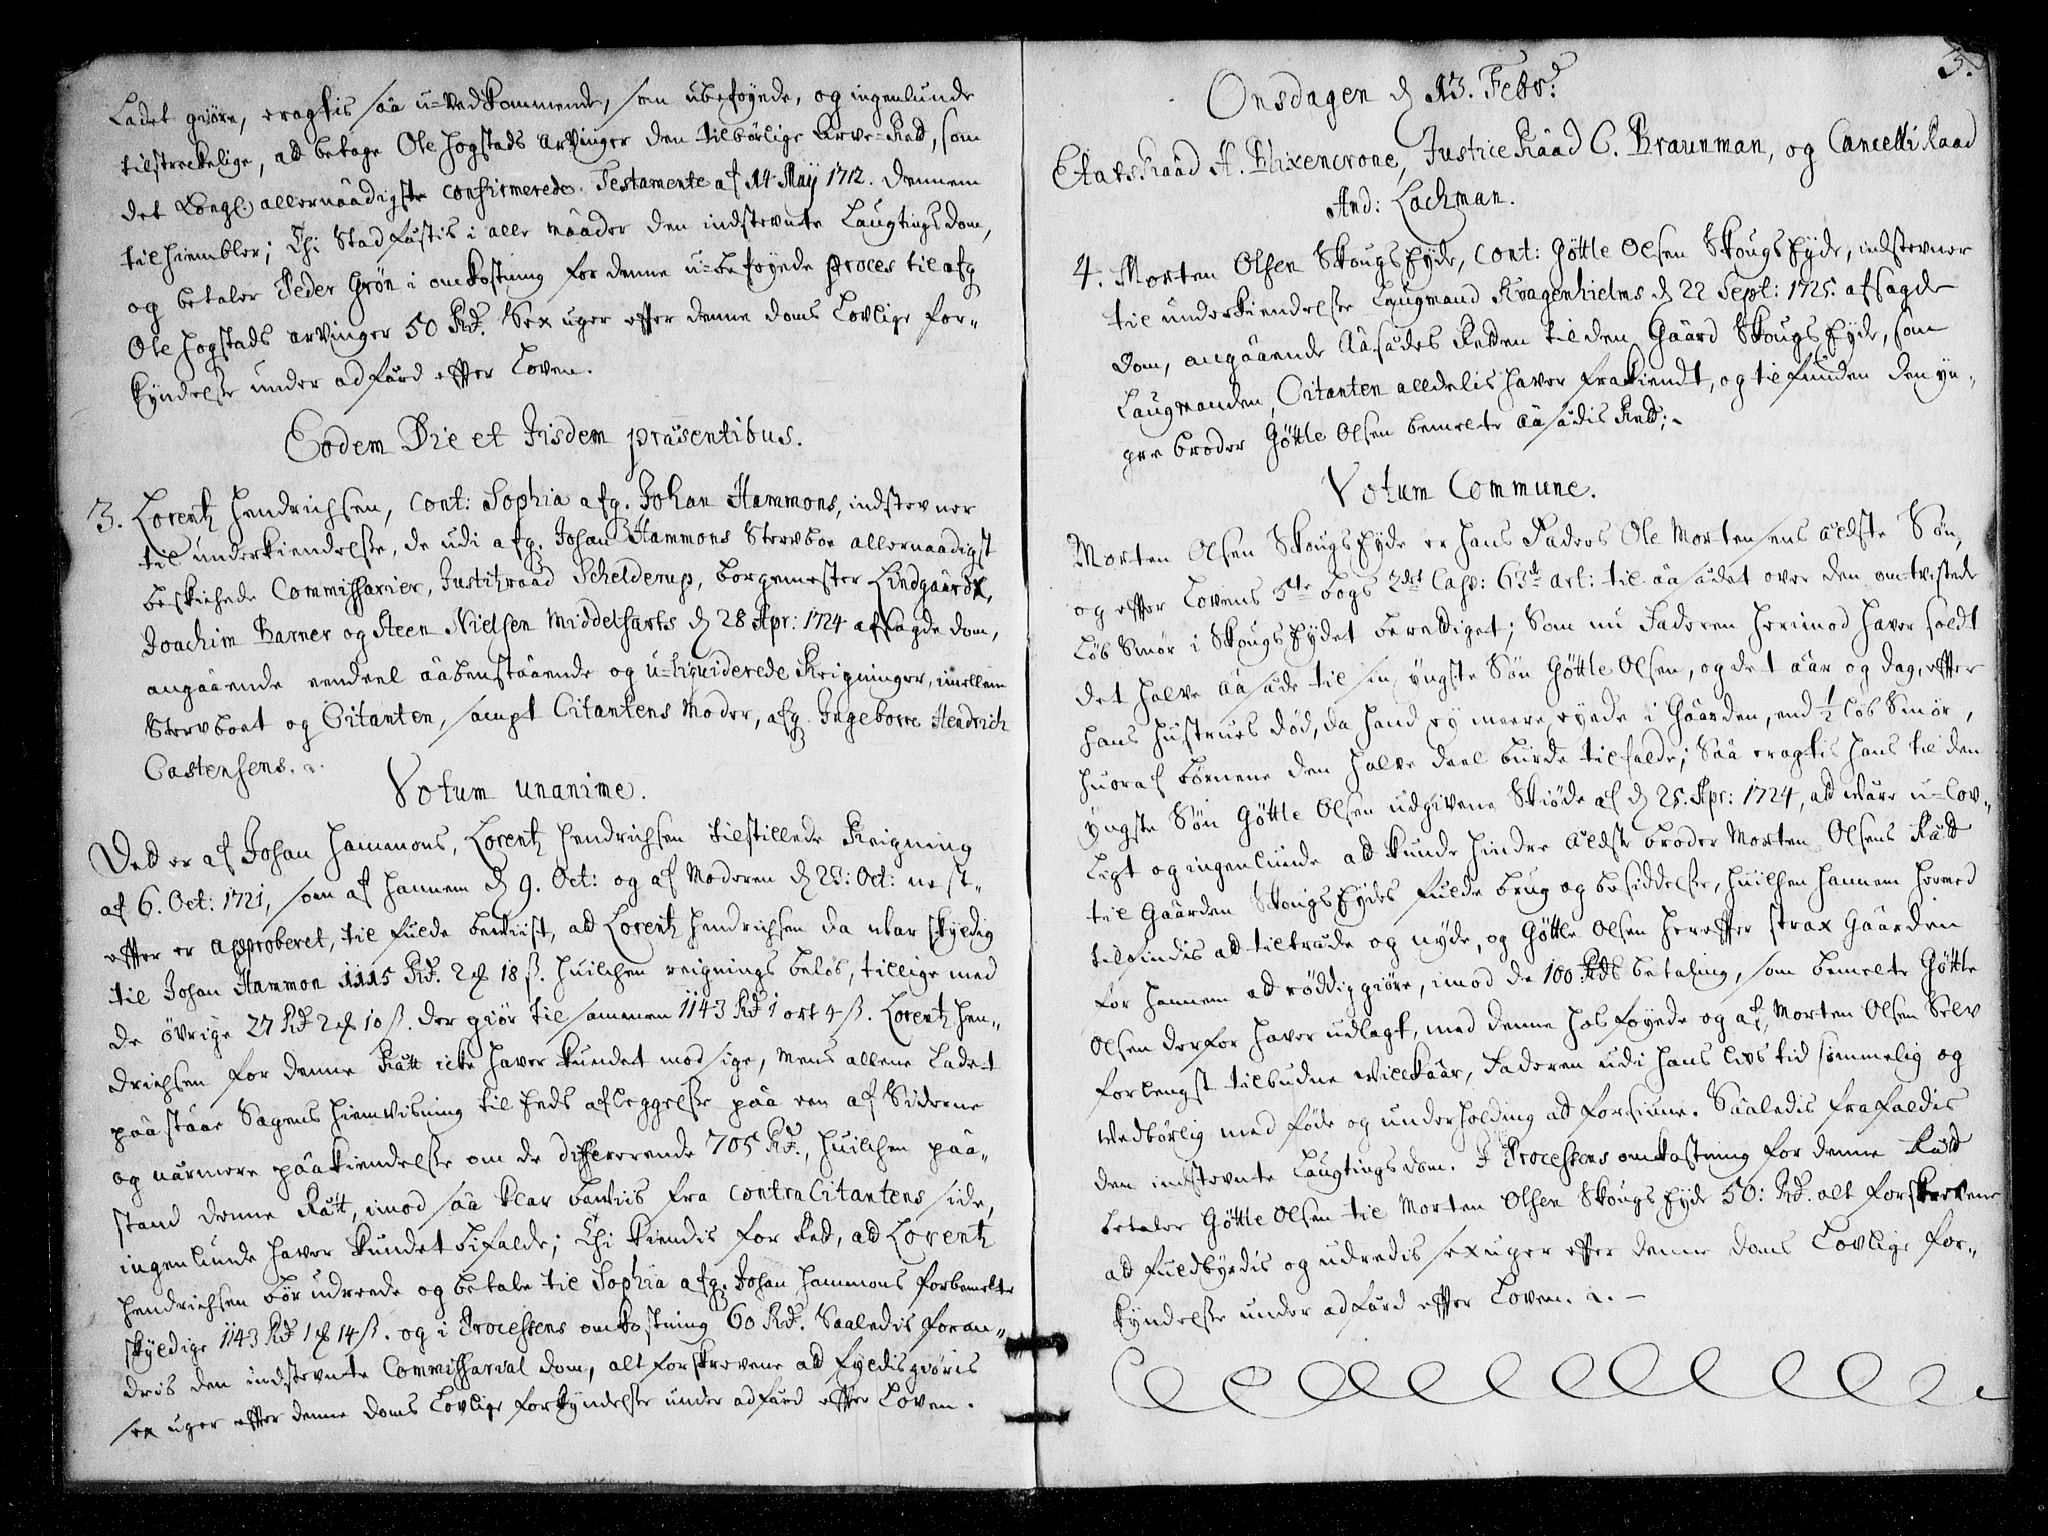 Ladet giöre, eragtis saa u=Vedkommende, som ubeföyede, og ingenlunde
tilstreckelige, ad betage Ole Hogstads arvinger den tilbörlige Arve=Rett, som
det Kongl: allernaadigste confirmerede Testamente af 14 Maÿ 1712. dennem
tilhiembler; Thi Stadfæstis i alle maader den indstevnte Laugtings dom,
og betaler Peder Grön i omkostning for denne u=beföyede proces til afg
Ole Hogstads arvinger 50 Rd. Sex uger effter denne doms Lovlige for=
kyndelsse under adfærd effter Loven.
Eodem Die et Iisdem præsentibus.
3. Lorentz Hendrichsen, cont: Sophia afg. Johan Hammons, indstevner
til underkiendelsse, de udi afg. Johan Hammons Stervboe allernaadigst
beskichede Commissarier, Justitzraad Schelderup, borgemester Lindgaard,
Joachim Barner og Steen Nielsen Middelfarts d 28 Apr: 1724 afsagde dom,
angaaende eendeel aabenstaaende og u=liqviderede Reigninger, imellem
Stervboet og Citanten, sampt Citantens Moder, afg. Ingeborre Hendrich
Castensens.
Votum unanime.
Det er af Johan Hammons, Lorentz Hendrichsen tilstillede Reigning
af 6. Oct: 1721, som af hannem d 9. Oct: og af Moderen d 23: Oct: nest=
effter er approberet, til fulde beviist, ad Lorentz Hendrichsen da var skyldig
til Johan Hammon 1115 Rd. 2 18 ß. huilchen reignings beløb, tillige med
de övrige 27 Rd 2 10 ß. der giör til sammen 1143 Rd 1 ort 4 ß. Lorentz Hen=
drichsen for denne Rætt icke haver kundet modsige, mens allene Ladet
paastaae Sagens hiemvisning til Eeds aflæggelsse paa een af Siderne
og nærmere paakiendelsse om de differerende 705 Rd., huilchen paa=
stand denne Rætt, imod saa klar beviis fra contraCitantens side,
ingenlunde haver kundet bifalde; Thi kiendis for Ret, ad Lorentz
Hendrichsen bör udreede og betale til Sophia afg. Johan Hammons forbemelte
skyldige 1143 Rd 1 14 ß. og i Processens omkostning 60 Rd. Saaledis foran=
dris den indstevnte Commissarial dom, alt forskrevene ad fyldisgiöris
sex uger effter denne doms Lovlige forkyndelsse under adfærd effter Loven.
3.
Onsdagen d 13. Febr:
Etatsraad A. Blixencrone, Justice Raad C. Braunman, og Cancelli Raad
And: Lachman.
4. Morten Olsen Skougs Eyde, cont: Göttle Olsen Skougs Eyde, indstevner
til underkiendelsse Laugmand Kragenhielms d 22 Sept: 1725. afsagde
dom, angaaende Aasædes Retten til den Gaard Skougs Eyde, som
Laugmanden, Citanten alldelis haver frakiendt, og tilfunden den yn=
gre broder Göttle Olsen bemelte aasædis Ret;
Votum Commune.
Morten Olsen Skougs Eyde er hans Faders Ole Mortensens ældste Søn,
og effter Lovens 5te bogs 2det Cap: 63de art: til aasædet over den omtvistede
Löb Smør i Skougs Eydet berettiget; Som nu Faderen herimod haver soldt
det halve aasæde til sin yngste Søn Göttle Olsen, og det aar og dag, effter
hans Hustrues død, da hand ey meere eyede i Gaarden, end 1/2 Löb Smør,
huoraf börnene den halve deel burde tilfalde; Saa eragtis hans til den
yngste Søn Göttle Olsen udgivene Skiöde af d 25. Apr: 1724, ad være u=lov=
ligt og ingenlunde ad kunde hindre ældste broder Morten Olsens Rætt
til Gaarden Skougs Eydes fulde brug og besiddelsse, huilchen hannem hermed
tilfindis ad tiltræde og nyde, og Göttle Olsen hereffter strax Gaarden
for hannem ad röddiggiöre, imod de 100 Rds betaling, som bemelte Göttle
Olsen derfor haver udlagt, med denne hosföyede og af Morten Olsen Selv
forlengst tilbudne Villkaar, Faderen udi hans livs tid sømmelig og
vedbörlig med föde og underholding ad forsiune. Saaledis frafaldis
den indstevnte Laugtings dom. I Processens omkostning for denne Rætt
betaler Göttle Olsen til Morten Olsen Skougs Eyde 50: Rd. alt forskrevene
ad fuldbyrdis og udredis sex uger effter denne doms Lovlige for=
kyndelsse under adfærd effter Loven.